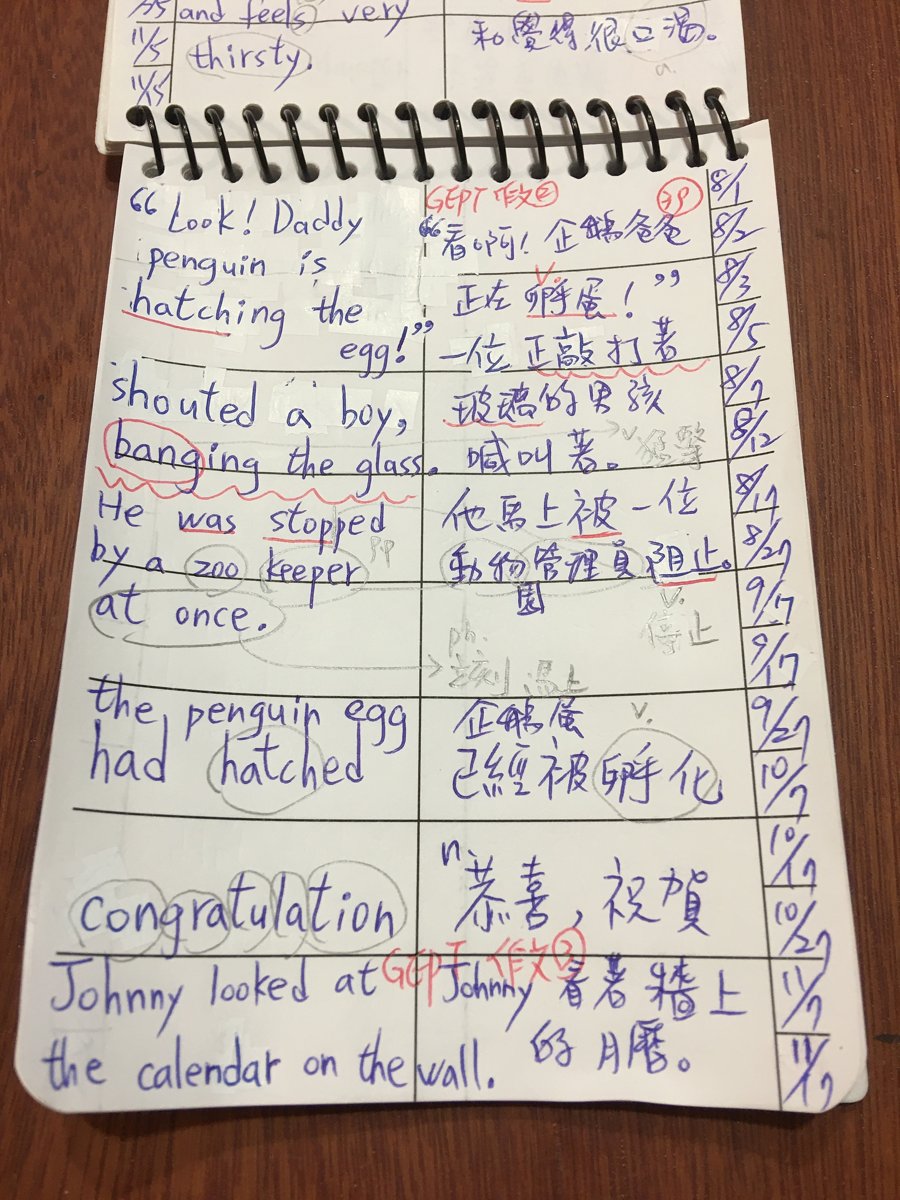 and feels very
thirsty.
和覺得很口渴。
a.
11/5
11/5
GEPT 作文②
"Look! Daddy
penguin is
hatching the
egg!"
"看啊! 企鵝爸爸
正在孵蛋!"
v.
一位正敲打著
shouted a boy,
banging the glass.
玻璃的男孩
喊叫著。
v. 猛擊
He was stopped
by a zoo keeper
at once.
pp
他馬上被一位
動物園管理員阻止。
v.
停止
ph.
立刻 馬上
the penguin egg
had hatched
企鵝蛋
v.
已經被孵化
congratulation
n.
恭喜,祝賀
GEPT 作文③
Johnny looked at
the calendar on the wall.
Johnny 看著牆上
的月曆。
8/1
8/2
8/3
8/5
8/7
8/12
8/17
8/27
9/17
9/17
9/27
10/7
10/17
10/27
11/7
11/17